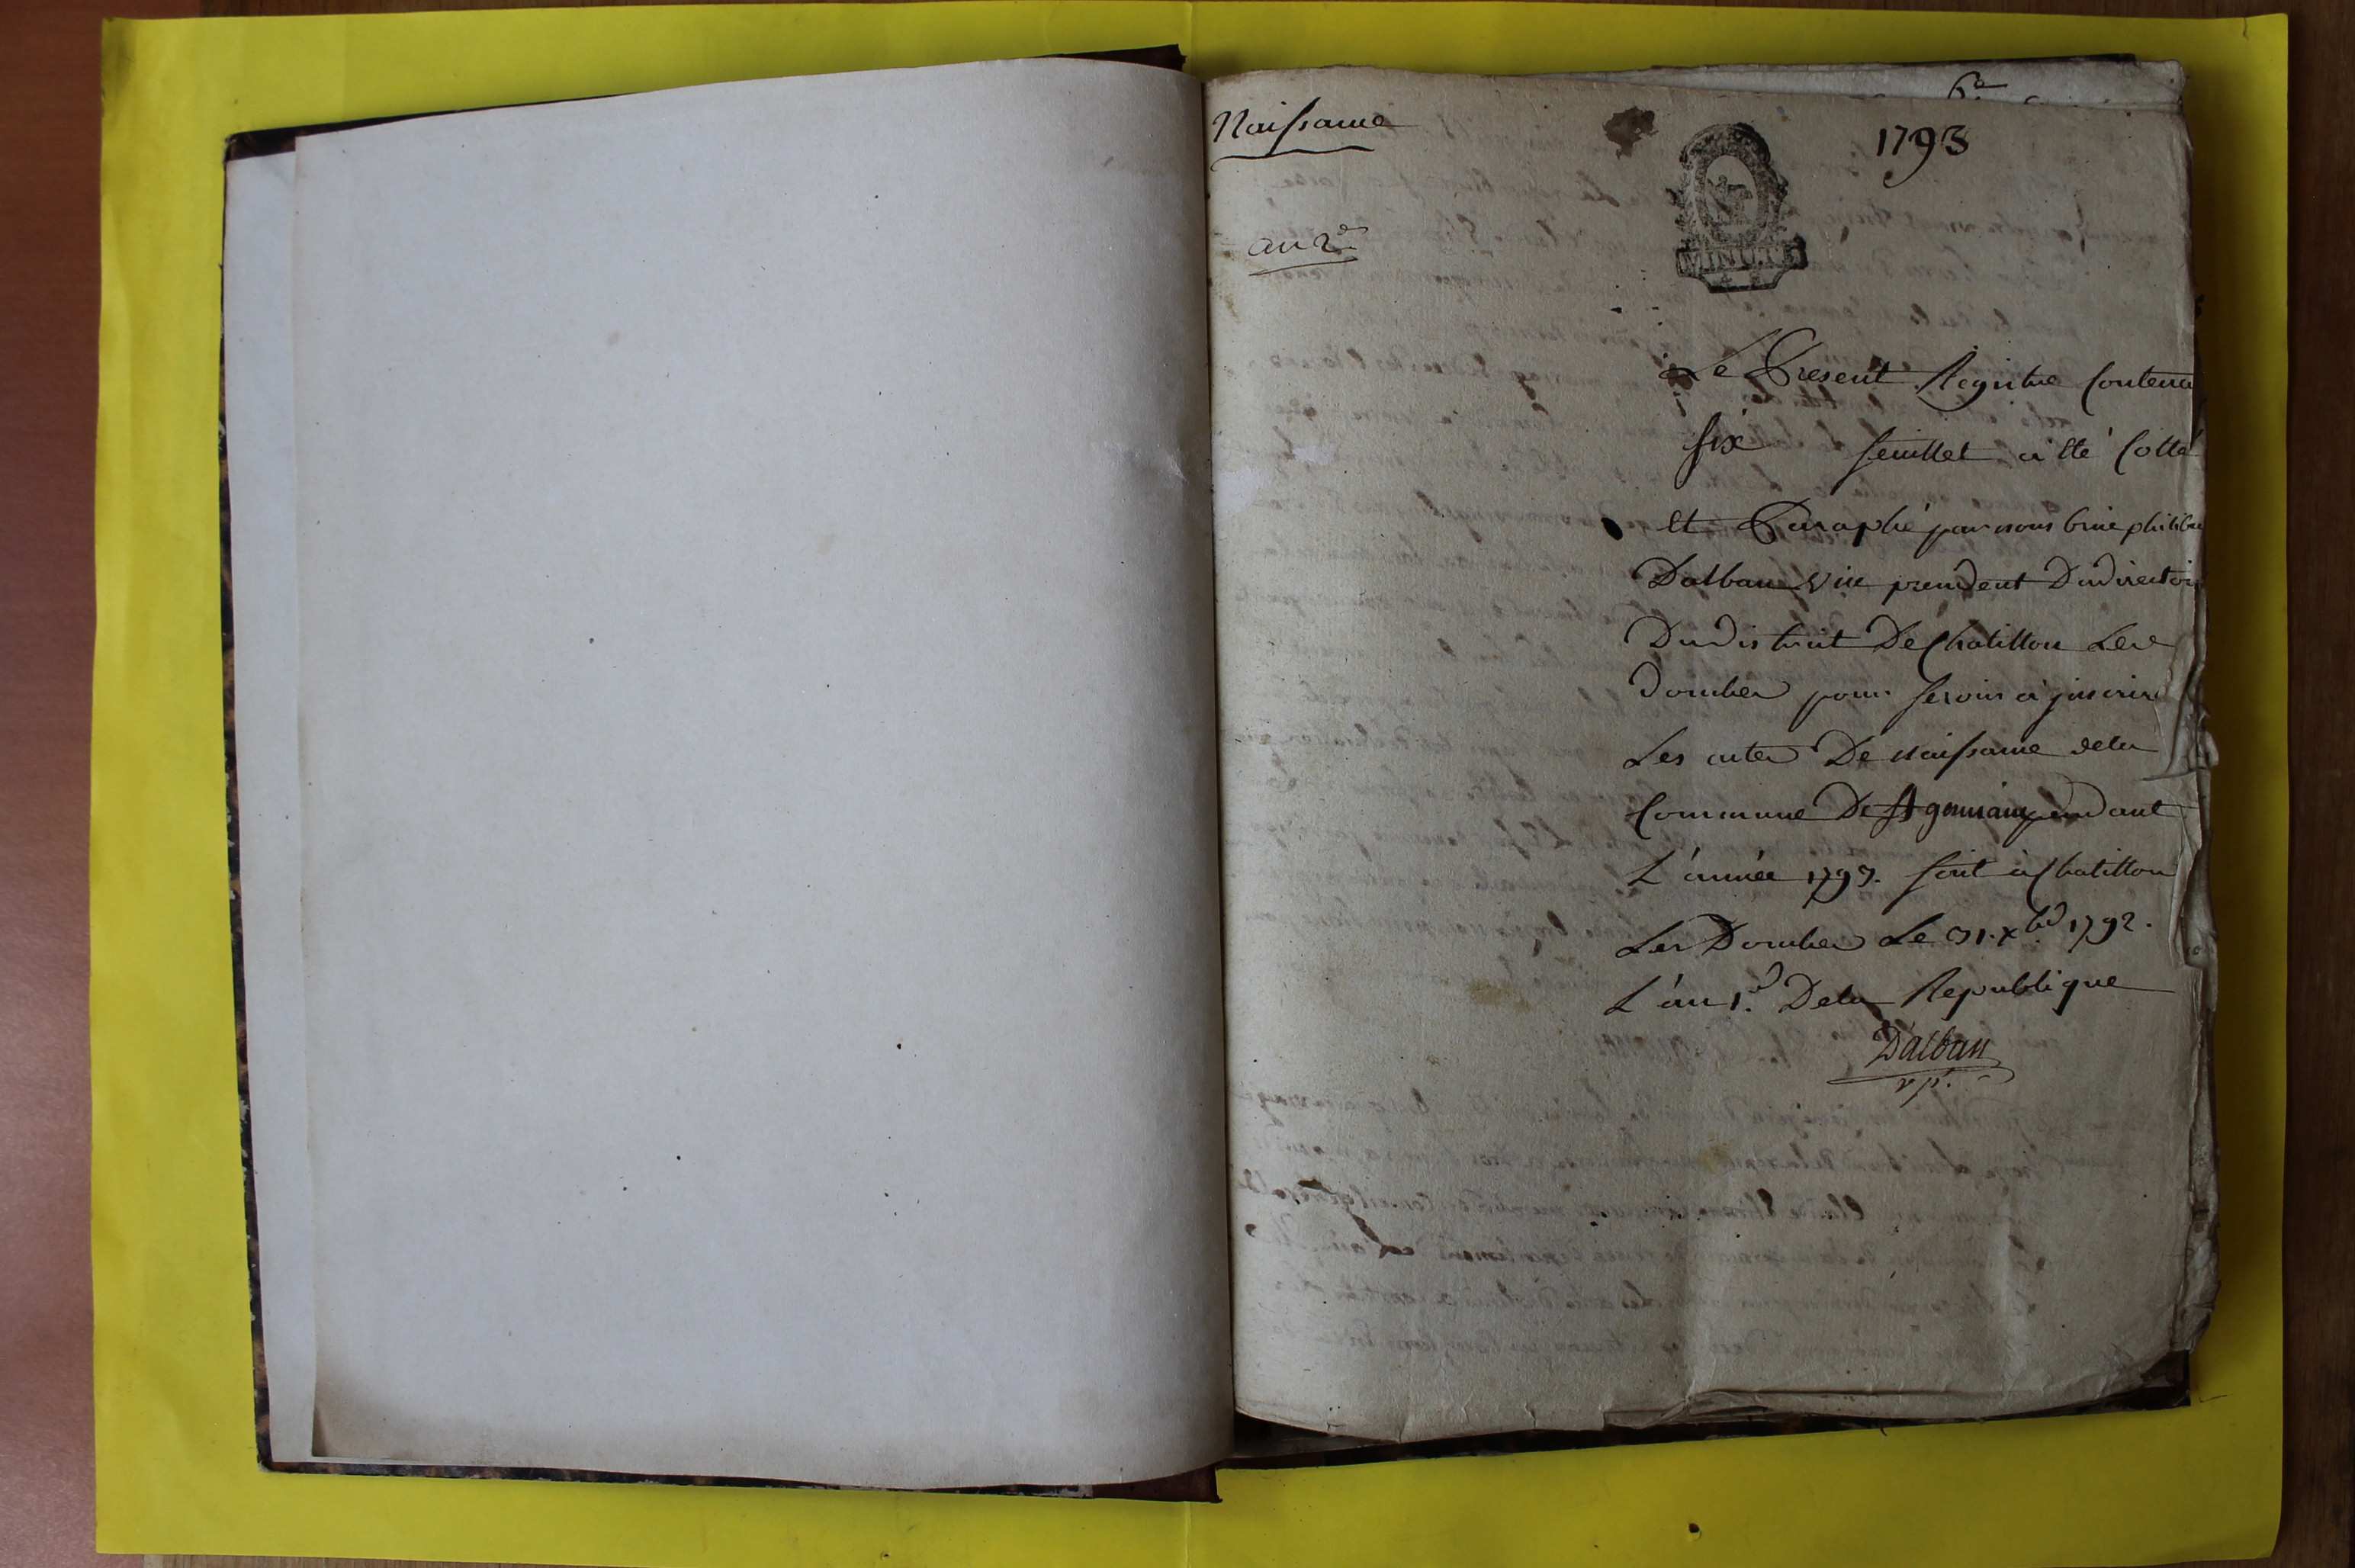 Naissance
1793
an 2e
MINUTE
Le Present Registre Contena
six feuillet a Eté Cotté
et Paraphé par nous
Dalban Vice president Du directoi
Du district De Chatillon Les
Dombes pour servir a jnscrire
Les actes De naissance dela
Commune De St germain pendant
L'année 1793. fait à Chatillon
Les Dombes Le 31. Xbre 1792.
L'an 1er Dela Republique
Dalban
vp.